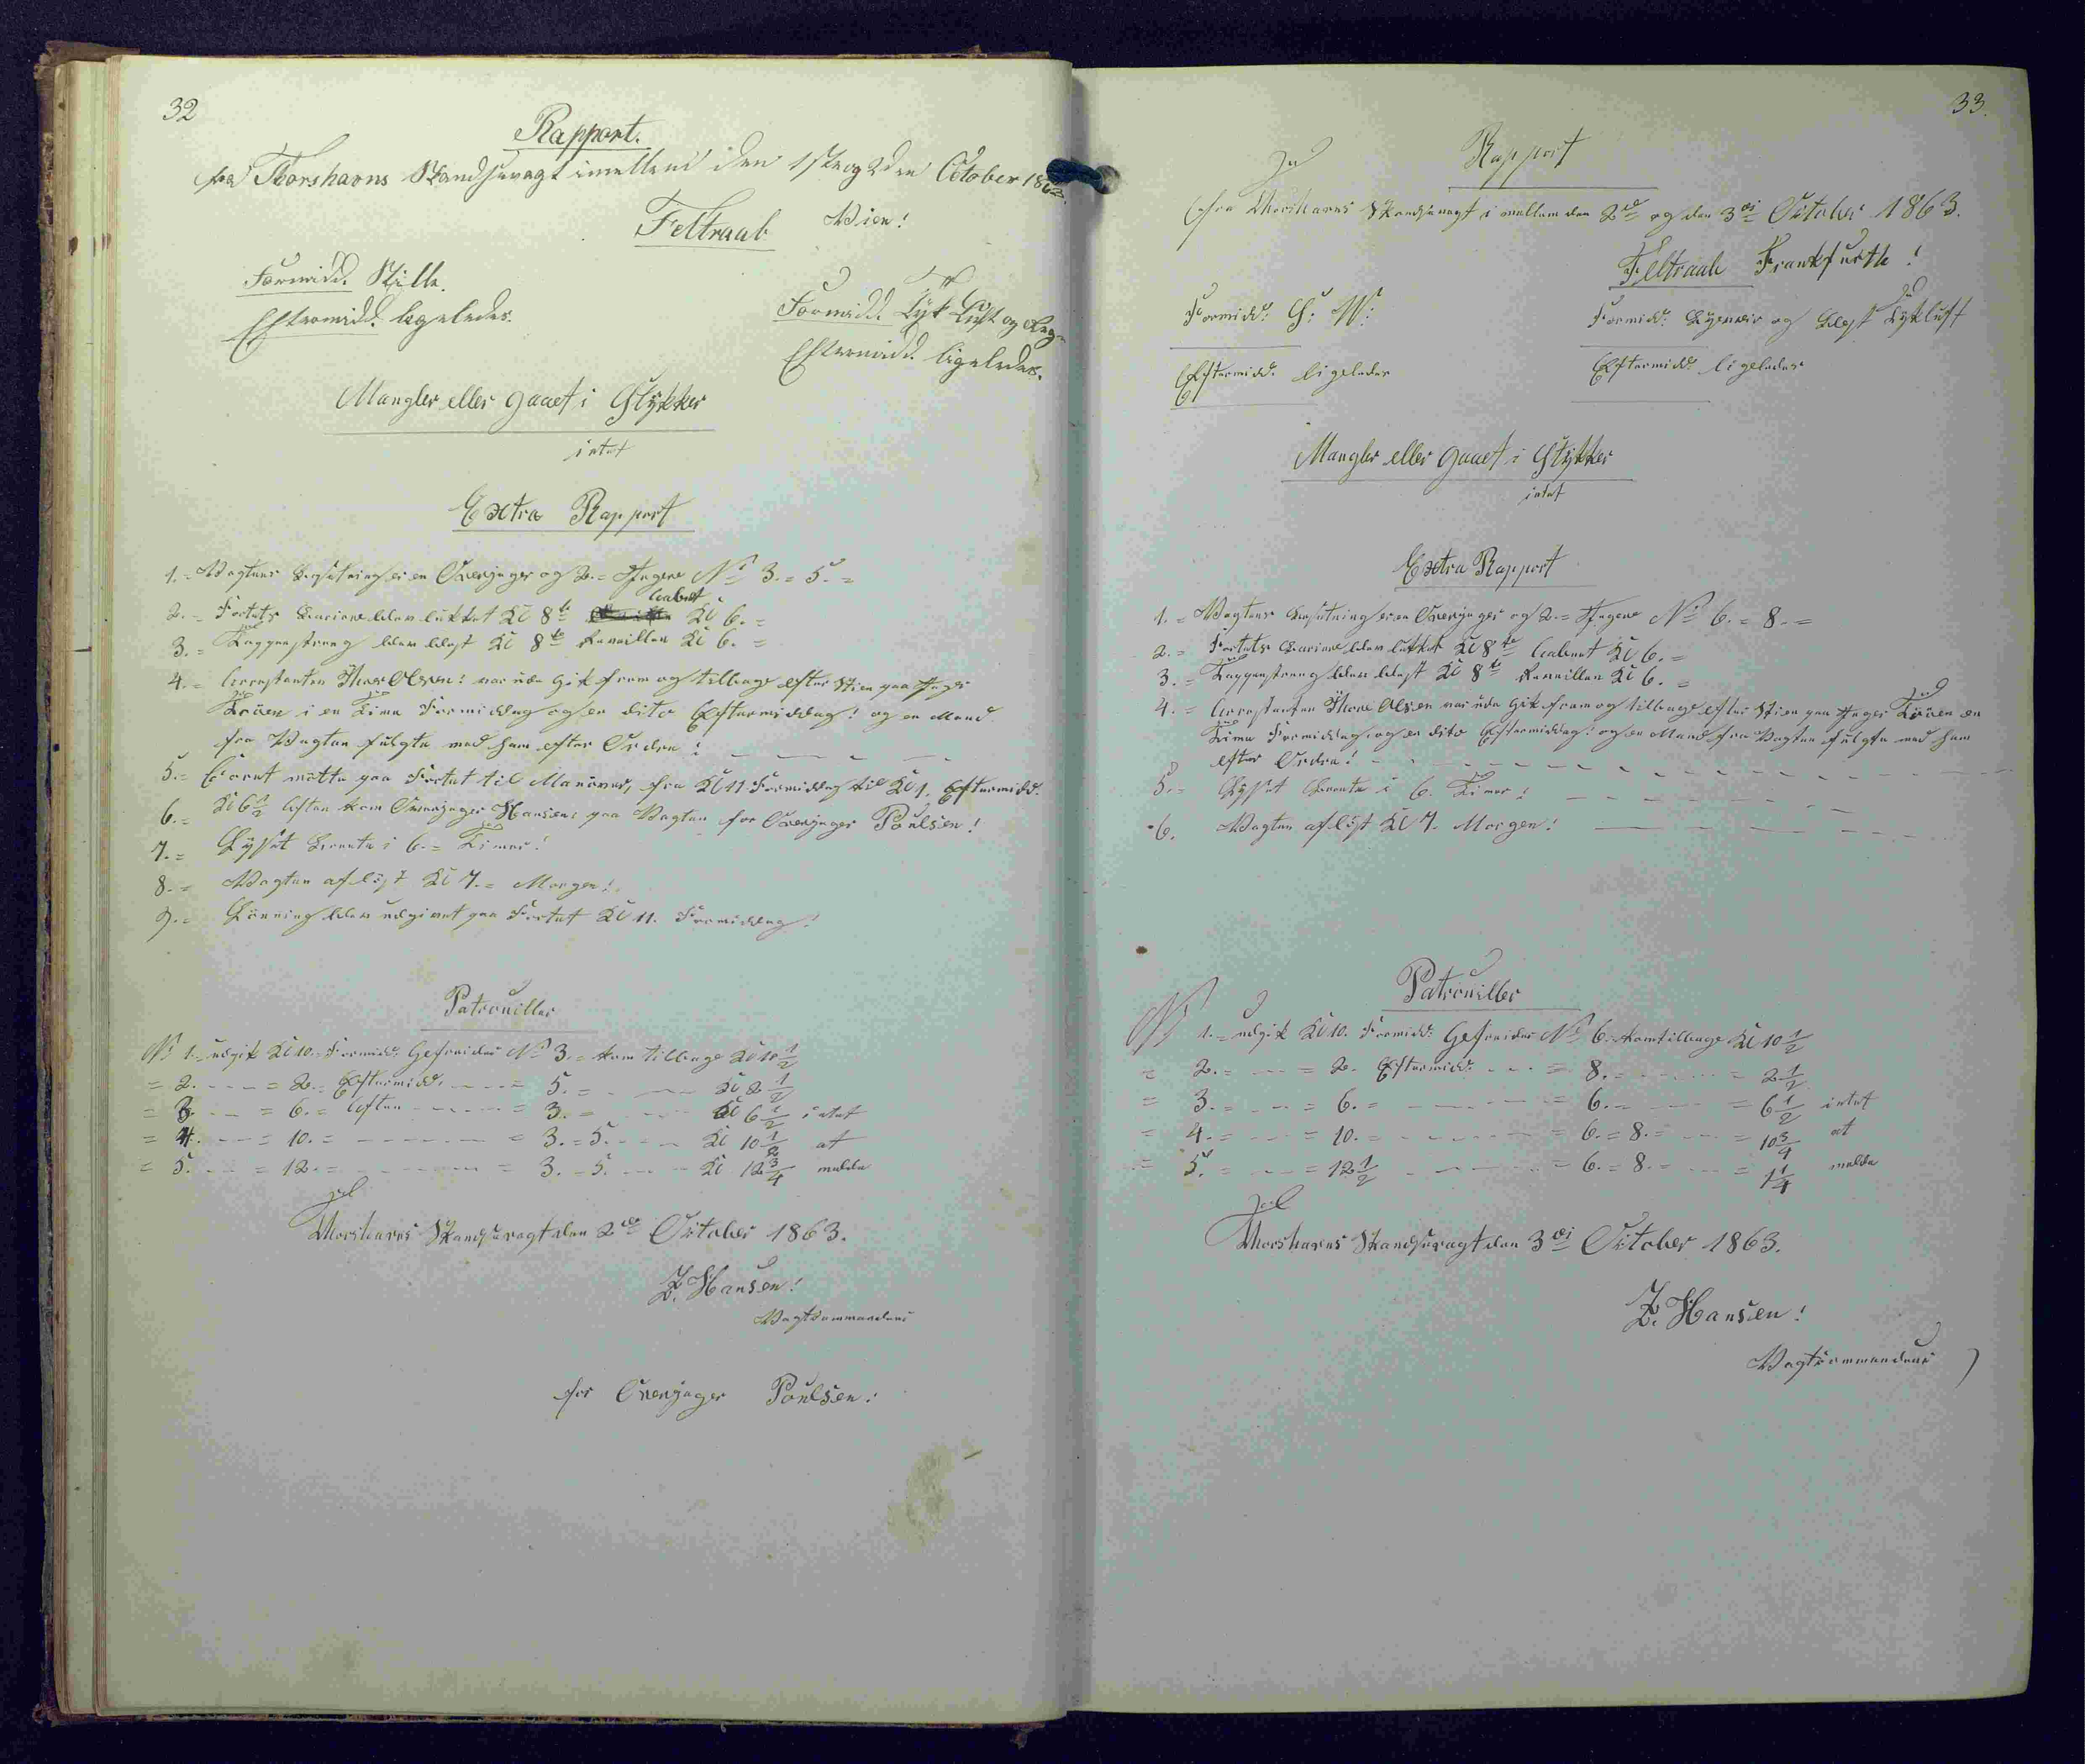 32
Rapport.
fra Thorshavns Skandsevagt imellem den 1ste og 2den October 1863.
Feltraab Wien!
Formidd. Stille.
Eftermidd. ligeledes.
Formidd. Tyk Luft og Regn
Eftermidd. ligeledes.
Mangler eller gaaet i Stykker
intet
Extra Rapport
1. = Vagtens Besætning er en Overjæger og 2. = Jægere No 3. = 5. =
2. = Fortets Barriere blev lukket Kl 8te aabnet Kl 6. =
3. = Tappenstreng blev blæst Kl 8te Reveillen Kl 6. =
4. = Arrestanten Thore Olsen! var ude gik frem og tilbage efter Stien paa Jæger
Töven i en Time Formiddag og en dito Eftermiddag! og en Mand
fra Vagten fulgte med ham efter Ordre!
5. = Corpset mötte paa Fortet til Manöver, fra Kl 11 Formiddag til Kl 1. Eftermidd.
6. = Kl 6 1/2 Aften kom Overjæger Hansen paa Vagten for Overjæger Poulsen!
7. = Lyset brænte i 6. = Timer!
8. = Vagten aflöst Kl 7. = Morgen!
9. = Lönning blev udgivet paa Fortet Kl 11. Formiddag!
Patrouiller
No 1. = udgik Kl 10. = Formidd: Gefreider No 3. = kom tilbage Kl 10 1/2
= 2. - - - = 2. = Eftermidd. - - - = 5. = - - - Kl 2 1/2
= 3. - - - = 6. = Aften - - - - = 3. = - - - Kl 6 1/2 intet
= 4. - - - = 10. = - - - - - - = 3. = 5. - - - Kl 10 1/2 at
= 5. - - - = 12. = - - - - - - = 3. = 5. - - - Kl 12 3/4 melde
Thorshavns Skandsevagt den 2den October 1863.
Z. Hansen!
Vagtcommandeur
for Overjæger Poulsen!
33.
Rapport
fra Thorshavns Skandsevagt i mellem den 2den og den 3die October 1863.
Feltraab Frankfurth!
Formidd: S: W:
Eftermidd. ligeledes
Formidd: Bygeveir og blæst Tykluft
Eftermidd. ligeledes
Mangler eller gaaet i Stykker
intet
Extra Rapport
1. = Vagtens Besætning er en Overjæger og 2. = Jægere No 6. = 8. =
2. = Fortets Barriere blev lukket Kl 8te aabnet Kl 6. =
3. = Tappenstreng blev blæst Kl 8te Reveillen Kl 6. =
4. = Arrestanten Thore Olsen var ude gik frem og tilbage efter Stien paa Jæger Töven en
Time Formiddag og en dito Eftermiddag! og en Mand fra Vagten fulgte med ham
efter Ordre!
5. = Lyset brænte i 6. Timer!
6. Vagten aflöst Kl 7. Morgen!
Patrouiller
No 1. = udgik Kl 10. Formidd: Gefreider No 6. = kom tilbage Kl 10 1/2
= 2. = - - - = 2. Eftermidd: - - - = 8. - - - = 2 1/2
= 3. = - - - = 6. = - - - = 6. = - - - = 6 1/2 intet
= 4. = - - - = 10. = - - - = 6. = 8. = - - - = 10 3/4 at
= 5. = - - - = 12 1/2 - - - = 6. = 8. = - - - = 1 1/4 melde
Thorshavns Skandsevagt den 3die October 1863.
Z. Hansen!
Vagtcommandeur